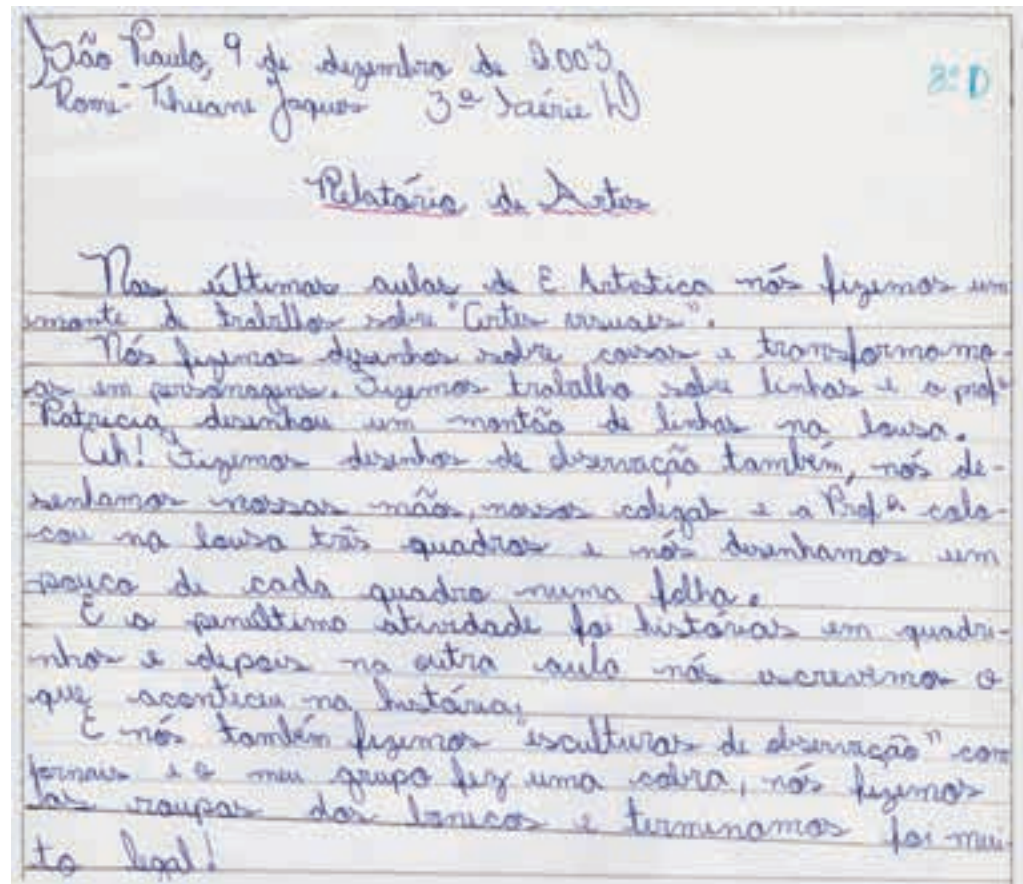 São Paulo, 9 de dezembro de 2003
3ª D
Nome: Thuane Jaques 3ª Série D
Relatório de Artes
Nas últimas aulas de E. Artistica nós fizemos um
monte de trabalhos sobre "Artes visuais".
Nós fizemos desenhos sobre coisas e transformamo-
as em personagens. Fizemos trabalho sobre linhas e a profª
Patricia desenhou um montão de linhas na lousa.
Ah! Fizemos desenhos de observação também, nós de-
senhamos nossas mãos, nossos colegas e a Profª colo-
cou na lousa três quadros e nós desenhamos um
pouco de cada quadro numa folha.
E a penúltima atividade foi histórias em quadri-
nhos e depois na outra aula nós escrevemos o
que aconteceu na história.
E nós também fizemos "esculturas de observação" com
jornais e o meu grupo fez uma cobra, nós fizemos
as roupas dos bonecos e terminamos foi mui-
to legal!